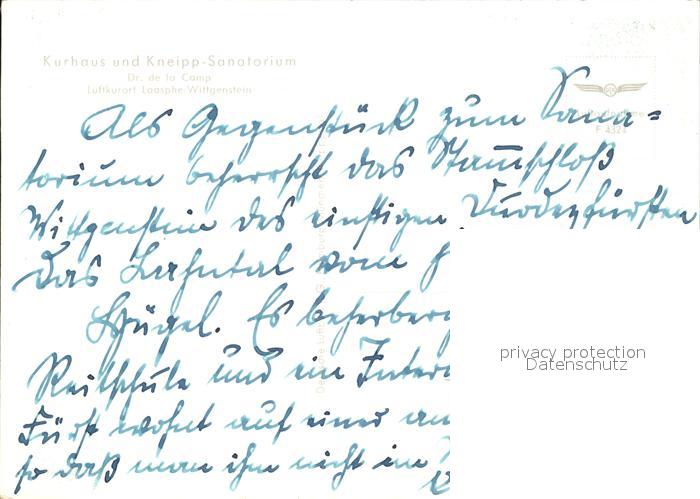 Kurhaus und Kneipp-Sanatorium
Dr. de la Camp
Luftkurort Laasphe-Wittgenstein
F 4324
Als Gegenstück zum Sana=
torium beherrscht das Stammschloß
Wittgenstein des einstigen Duodezfürsten
das Lahntal vom
Hügel. Es beherberg
Reitschule und ein Intern
Fürst wohnt auf einer an
so daß man ihm nicht im
privacy protection
Datenschutz